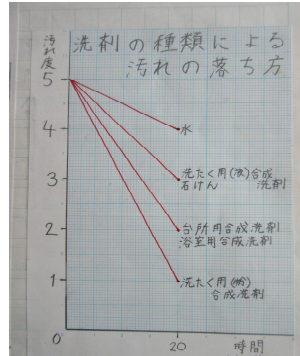 洗剤の種類による
汚れの落ち方
汚れ度
5
4
3
2
1
0
水
洗たく用(液)合成
石けん 洗剤
台所用合成洗剤
浴室用合成洗剤
洗たく用(粉)
合成洗剤
20 時間